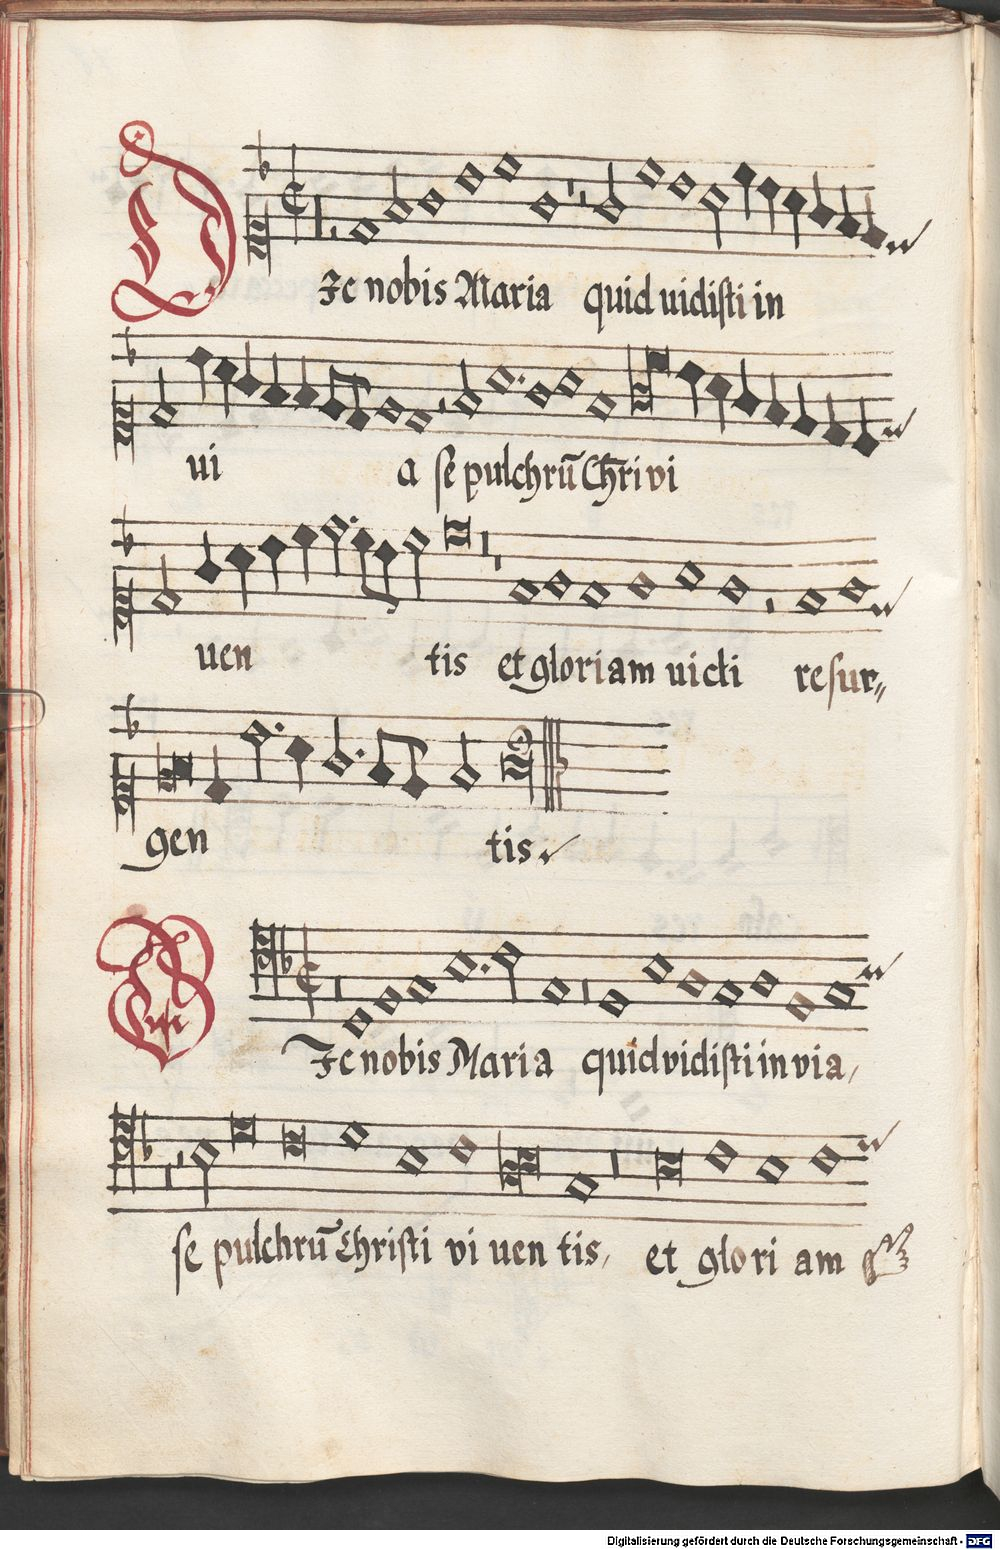 DJc nobis Maria quid uidisti in
ui a sepulchrū Chri vi
uen tis et gloriam uicti resur„
gen tis
Bassus Jc nobis Maria quid vidisti in via,
sepulchrū Christi vi uen tis, et glori am
Digitalisierung gefördert durch die Deutsche Forschungsgemeinschaft - DFG